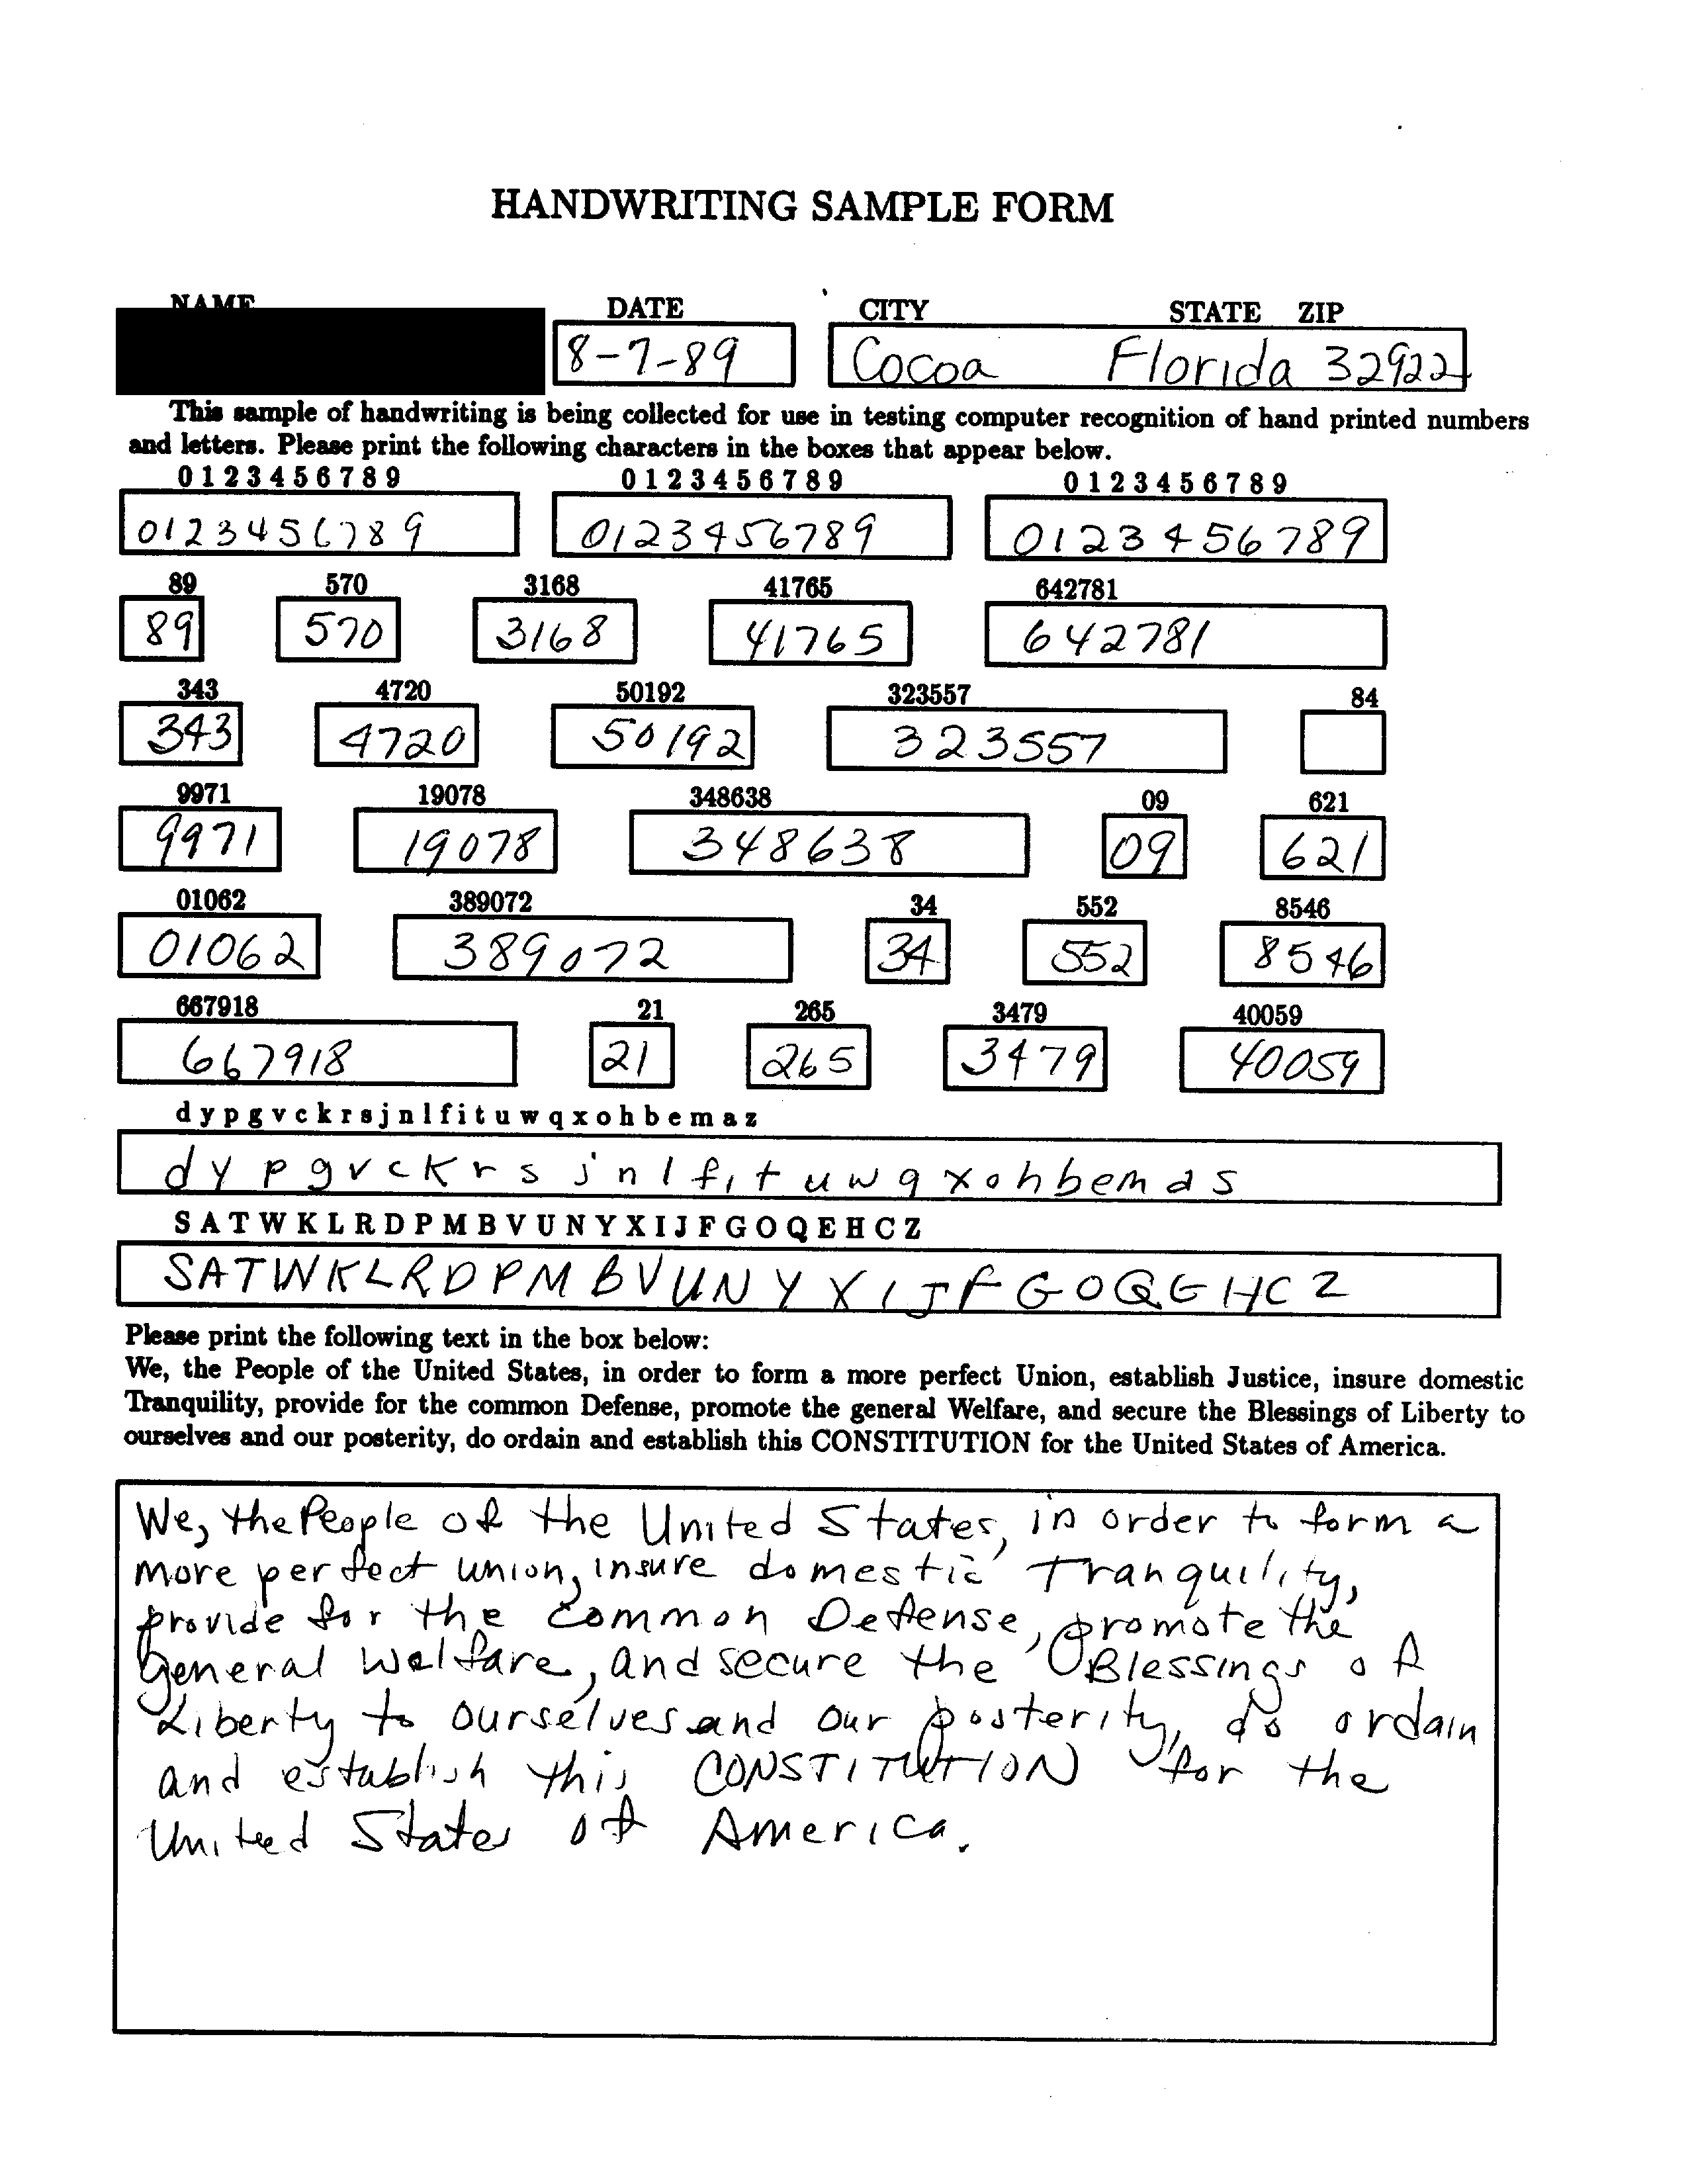 HANDWRITING SAMPLE FORM
NAME DATE CITY STATE ZIP
8-7-89 Cocoa Florida 32922
This sample of handwriting is being collected for use in testing computer recognition of hand printed numbers
and letters. Please print the following characters in the boxes that appear below.
0 1 2 3 4 5 6 7 8 9 0 1 2 3 4 5 6 7 8 9 0 1 2 3 4 5 6 7 8 9
0123456789 0123456789 0123456789
89 570 3168 41765 642781
89 570 3168 41765 642781
343 4720 50192 323557 84
343 4720 50192 323557
9971 19078 348638 09 621
9971 19078 348638 09 621
01062 389072 34 552 8546
01062 389072 34 552 8546
667918 21 265 3479 40059
667918 21 265 3479 40059
d y p g v c k r s j n l f i t u w q x o h b e m a z
d y p g v c k r s j n l f i t u w q x o h b e m a s
S A T W K L R D P M B V U N Y X I J F G O Q E H C Z
S A T W K L R D P M B V U N Y X I J F G O Q G H C Z
Please print the following text in the box below:
We, the People of the United States, in order to form a more perfect Union, establish Justice, insure domestic
Tranquility, provide for the common Defense, promote the general Welfare, and secure the Blessings of Liberty to
ourselves and our posterity, do ordain and establish this CONSTITUTION for the United States of America.
We, the People of the United States, in order to form a
more perfect union, insure domestic Tranquility,
provide for the common Defense, promote the
general Welfare, and secure the Blessings of
Liberty to ourselves and our posterity, do ordain
and establish this CONSTITUTION for the
United States of America.